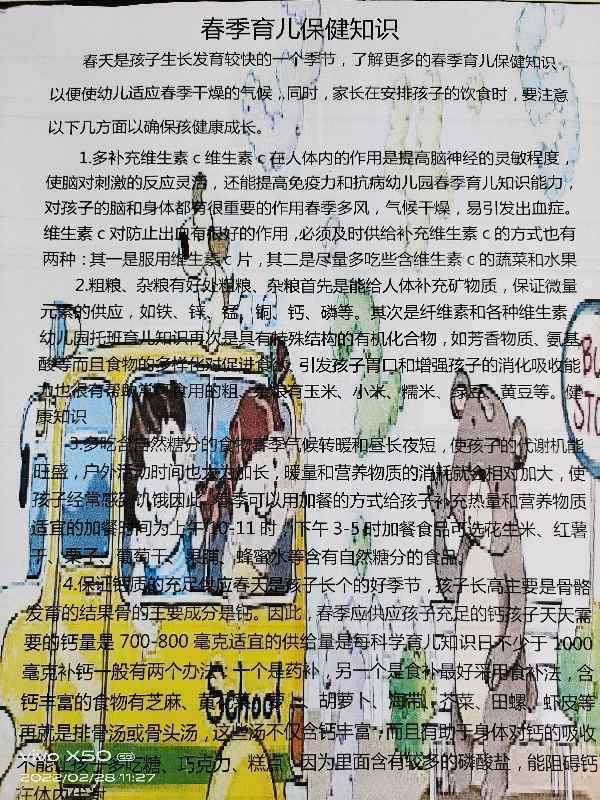 春季育儿保健知识
春天是孩子生长发育较快的一个季节，了解更多的春季育儿保健知识，
以便使幼儿适应春季干燥的气候，同时，家长在安排孩子的饮食时，要注意
以下几方面以确保孩健康成长。
1.多补充维生素 c 维生素 c 在人体内的作用是提高脑神经的灵敏程度，
使脑对刺激的反应灵活，还能提高免疫力和抗病幼儿园春季育儿知识能力，
对孩子的脑和身体都有很重要的作用春季多风，气候干燥，易引发出血症。
维生素 c 对防止出血有很好的作用，必须及时供给补充维生素 c 的方式也有
两种：其一是服用维生素 c 片，其二是尽量多吃些含维生素 c 的蔬菜和水果
2.粗粮、杂粮有好处粗粮、杂粮首先是能给人体补充矿物质，保证微量
元素的供应，如铁、锌、锰、铜、钙、磷等。其次是纤维素和各种维生素
幼儿园托班育儿知识再次是具有特殊结构的有机化合物，如芳香物质、氨基
酸等而且食物的多样化对促进食欲、引发孩子胃口和增强孩子的消化吸收能
力也很有帮助常食用的粗、杂粮有玉米、小米、糯米、绿豆、黄豆等。健
康知识
3.多吃含自然糖分的食物春季气候转暖和昼长夜短，使孩子的代谢机能
旺盛，户外活动时间也大大加长，暖量和营养物质的消耗就会相对加大，使
孩子经常感到饥饿因此，春季可以用加餐的方式给孩子补充热量和营养物质
适宜的加餐时间为上午 10-11 时，下午 3-5 时加餐食品可选花生米、红薯
干、栗子、葡萄干、果脯、蜂蜜水等含有自然糖分的食品。
4.保证钙质的充足供应春天是孩子长个的好季节，孩子长高主要是骨骼
发育的结果骨的主要成分是钙。因此，春季应供应孩子充足的钙孩子天天需
要的钙量是 700-800 毫克适宜的供给量是每科学育儿知识日不少于 1000
毫克补钙一般有两个办法：一个是药补，另一个是食补最好采用食补法，含
钙丰富的食物有芝麻、黄花菜、萝卜、胡萝卜、海带、芥菜、田螺、虾皮等
再就是排骨汤或骨头汤，这些汤不仅含钙丰富，而且有助于身体对钙的吸收
不能让孩子多吃糖、巧克力、糕点，因为里面含有较多的磷酸盐，能阻碍钙
在体内
BU
STO
School
vivo X50 5G
2022/02/28 11:27